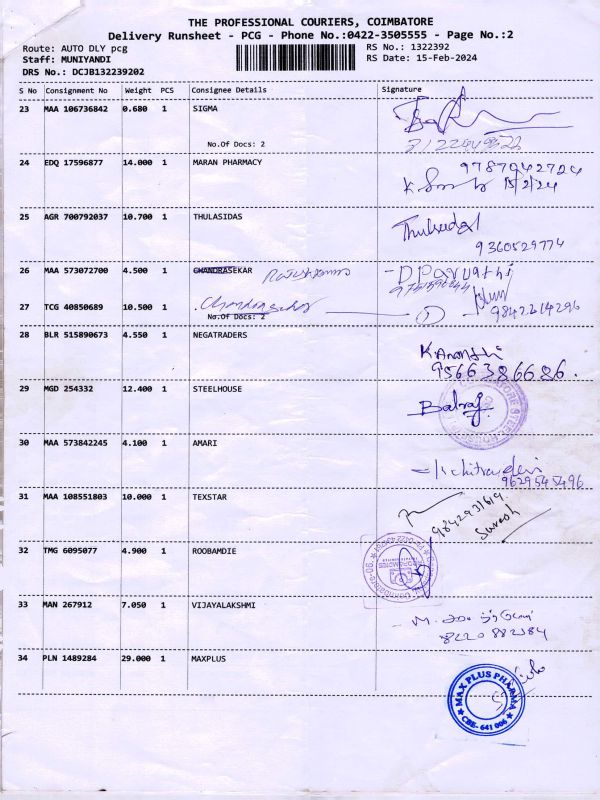 THE PROFESSIONAL COURIERS, COIMBATORE
Delivery Runsheet - PCG - Phone No.:0422-3505555 - Page No.:2
Route: AUTO DLY pcg RS No.: 1322392
Staff: MUNIYANDI RS Date: 15-Feb-2024
DRS No.: DCJB132239202
S No Consignment No Weight PCS Consignee Details Signature
23 MAA 106736842 0.680 1 SIGMA
No.Of Docs: 2
24 EDQ 17596877 14.000 1 MARAN PHARMACY 9787042724
15/2/24
25 AGR 700792037 10.700 1 THULASIDAS Thulsidas
9360529774
26 MAA 573072700 4.500 1 CHANDRASEKAR
27 TCG 40850689 10.500 1 Chandrasekar 9842214296
No.Of Docs: 2
28 BLR 515890673 4.550 1 NEGATRADERS
9566386686.
29 MGD 254332 12.400 1 STEELHOUSE Balraj
30 MAA 573842245 4.100 1 AMARI
9629545496
31 MAA 108551803 10.000 1 TEXSTAR 9842931619
Suresh
32 TMG 6095077 4.900 1 ROOBAMDIE
33 MAN 267912 7.050 1 VIJAYALAKSHMI
8220882384
34 PLN 1489284 29.000 1 MAXPLUS
MAX PLUS PHARMA
CBE- 641 006